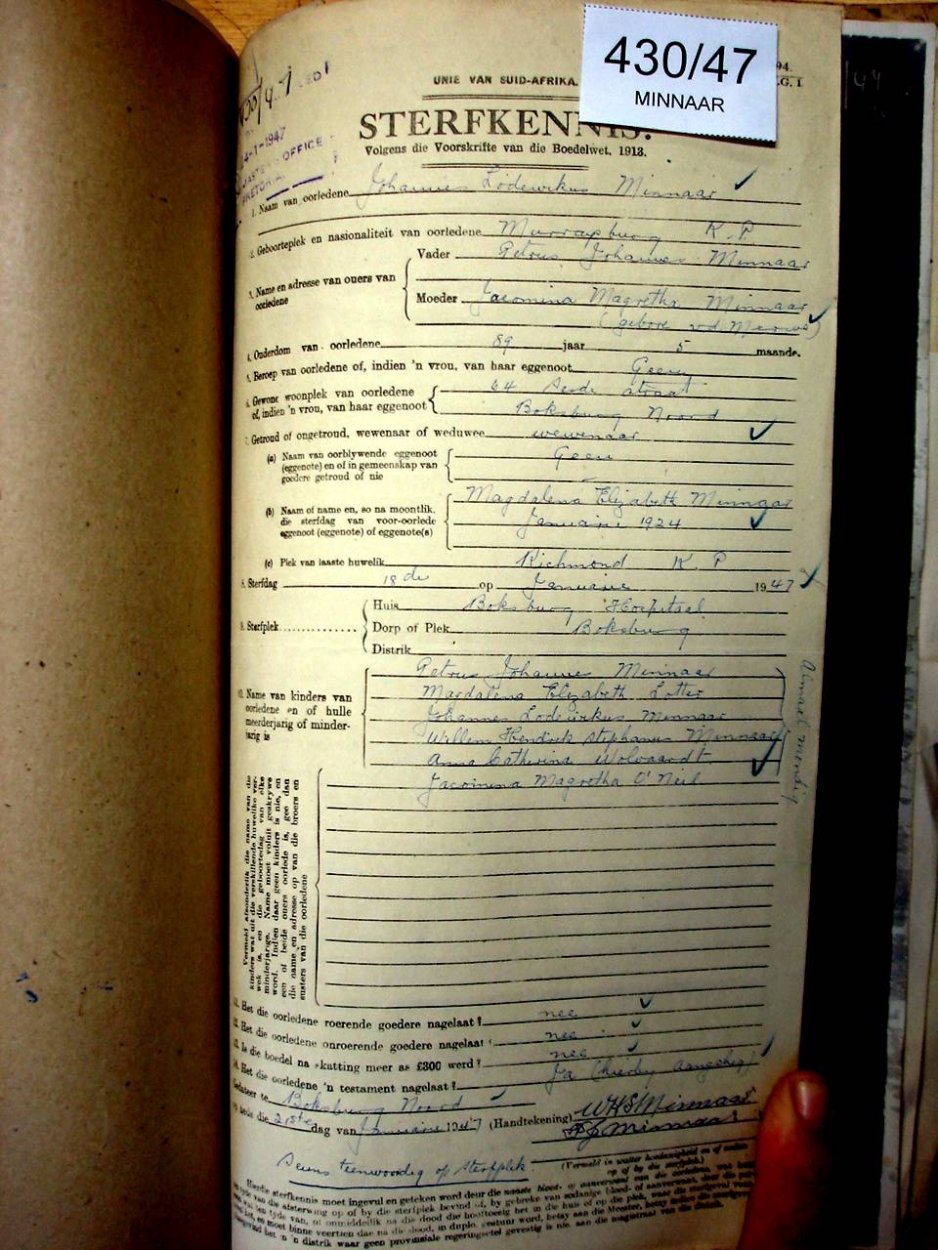 430/47
MINNAAR
94.
.G. 1
UNIE VAN SUID-AFRIKA.
4-1-1947
OFFICE
STERFKENNIS.
Volgens die Voorskrifte van die Boedelwet, 1913.
1. Naam van oorledene Johannes Lodewikus Minnaar
2. Geboorteplek en nasionaliteit van oorledene Murraysburg K. P
3. Name en adresse van ouers van oorledene
Vader Petrus Johannes Minnaar
Moeder Jacomina Magretha Minnaar
(gebore v d Merwe)
4. Ouderdom van oorledene 89 jaar 5 maande.
5. Beroep van oorledene of, indien 'n vrou, van haar eggenoot Geen
6. Gewone woonplek van oorledene of, indien 'n vrou, van haar eggenoot
64 straat
Boksburg Noord
7. Getroud of ongetroud, wewenaar of weduwee wewenaar
(a) Naam van oorblywende eggenoot (eggenote) en of in gemeenskap van goedere getroud of nie
Geen
(b) Naam of name en, so na moontlik, die sterfdag van voor-oorlede eggenoot (eggenote) of eggenote(s)
Magdalena Elizabeth Minnaar
Januarie 1924
(c) Plek van laaste huwelik Richmond K. P
8. Sterfdag 18de op Januarie 1947
9. Sterfplek
Huis Boksburg Hospitaal
Dorp of Plek Boksburg
Distrik
10. Name van kinders van oorledene en of hulle meerderjarig of minderjarig is
Petrus Johannes Minnaar
Magdalena Elizabeth Lotter
Johannes Lodewikus Minnaar
Willem Hendrik Stephanus Minnaar
Anna Catherina Wolvaardt
Jacomina Magretha O'Neil
Almal mondig
Vermeld afsonderlik die name van die kinders wat uit die verskillende huwelike verwek is, en die geboortedag van elke minderjarige. Name moet voluit geskrywe word. Indien daar geen kinders is nie, en een of beide ouers oorlede is, gee dan die name en adresse op van die broers en susters van die oorledene
11. Het die oorledene roerende goedere nagelaat? nee
12. Het die oorledene onroerende goedere nagelaat? nee
13. Is die boedel na skatting meer as £300 werd? nee
14. Het die oorledene 'n testament nagelaat? Ja (hierby aangeheg)
Gedateer te Boksburg Noord
op hede die 21ste dag van Januarie 1947 (Handtekening) WHS Minnaar
PJ Minnaar
Seuns teenwoordig op sterfplek.
(Vermeld in watter hoedanigheid en of
op of by die sterfplek)
Hierdie sterfkennis moet ingevul en geteken word deur die naaste bloed- of aanverwant van die oorledene,